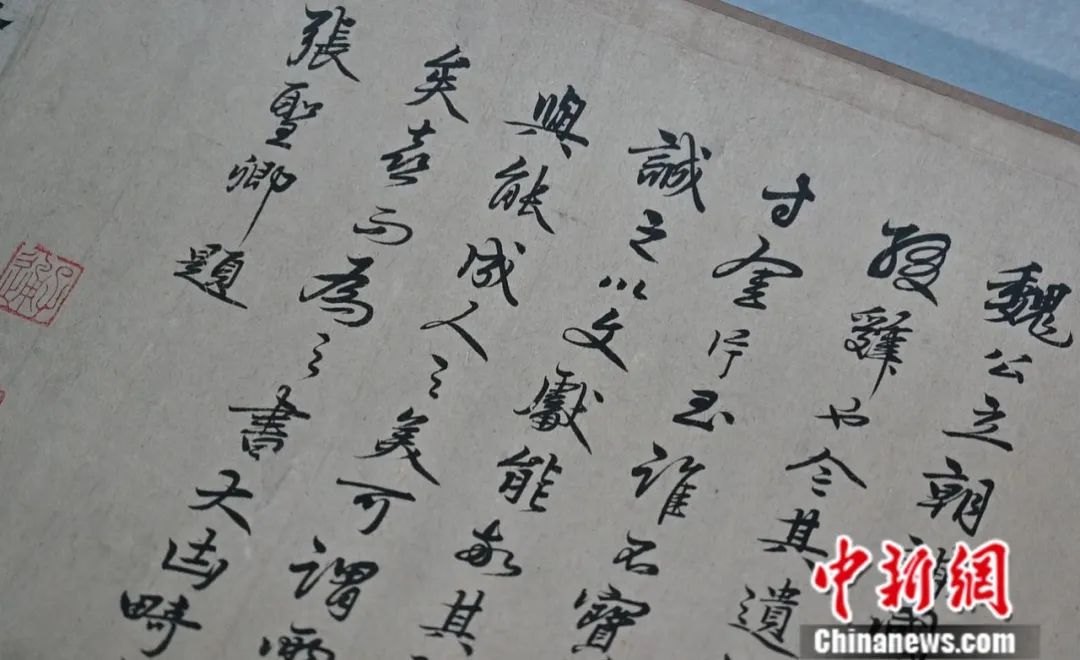 魏公立朝
辭也今其遺
寸金片玉誰不寶
誠之以文獻能敬其
與能成人之美可謂兩
矣喜而為之書大
張聖卿題
中新網
Chinanews.com